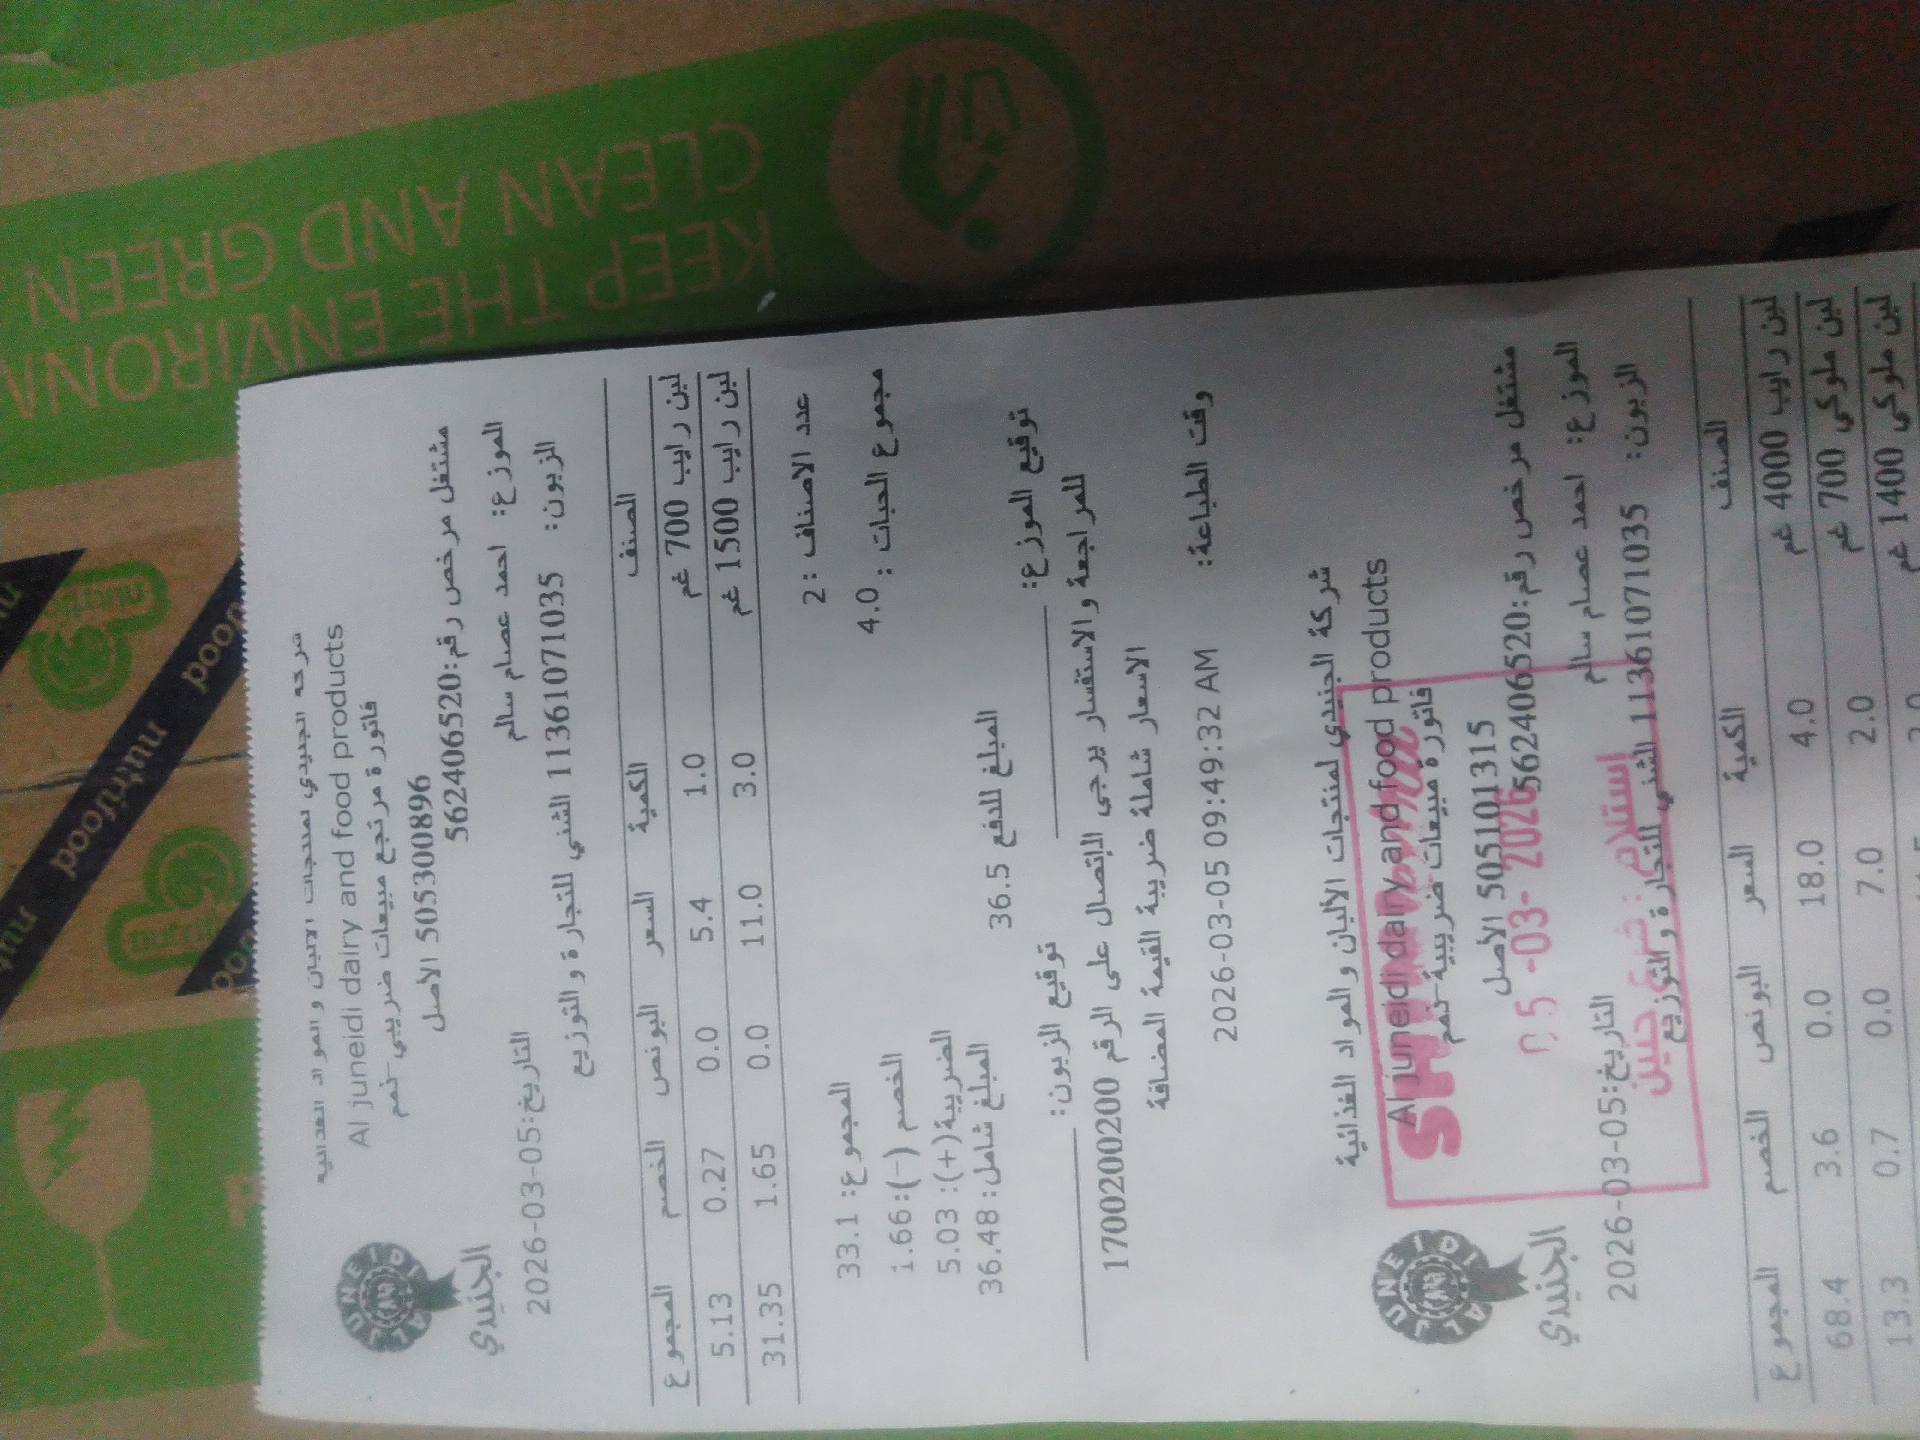 KEEP THE ENVIRONM
CLEAN AND GREEN
nutrifood
شركة الجنيدي لمنتجات الألبان والمواد الغذائية
Al juneidi dairy and food products
فاتورة مرتجع مبيعات ضريبي-ذمم
505300896 الأصل
مشتغل مرخص رقم:562406520
AL JUNEIDI
الجنيدي
الموزع: احمد عصام سالم
التاريخ:2026-03-05
الزبون: 1136107​1035 الشني للتجارة والتوزيع
الصنف الكمية السعر البونص الخصم المجموع
لبن رايب 700 غم 1.0 5.4 0.0 0.27 5.13
لبن رايب 1500 غم 3.0 11.0 0.0 1.65 31.35
عدد الاصناف :2
مجموع الحبات : 4.0
المجموع: 33.1
الخصم (-):1.66
الضريبة(+): 5.03
المبلغ شامل: 36.48
المبلغ للدفع 36.5
توقيع الموزع: توقيع الزبون:
للمراجعة والاستفسار يرجى الاتصال على الرقم 1700200200
الاسعار شاملة ضريبة القيمة المضافة
وقت الطباعة: 2026-03-05 09:49:32 AM
شركة الجنيدي لمنتجات الألبان والمواد الغذائية
Al juneidi dairy and food products
فاتورة مبيعات ضريبية-ذمم
505101315 الأصل
مشتغل مرخص رقم:562406520
05 -03- 2026
استلام :
AL JUNEIDI
الجنيدي
الموزع: احمد عصام سالم
التاريخ:2026-03-05
الزبون: 11361071035 الشني للتجارة والتوزيع
الصنف الكمية السعر البونص الخصم المجموع
لبن رايب 4000 غم 4.0 18.0 0.0 3.6 68.4
لبن ملوكي 700 غم 2.0 7.0 0.0 0.7 13.3
لبن ملوكي 1400 غم